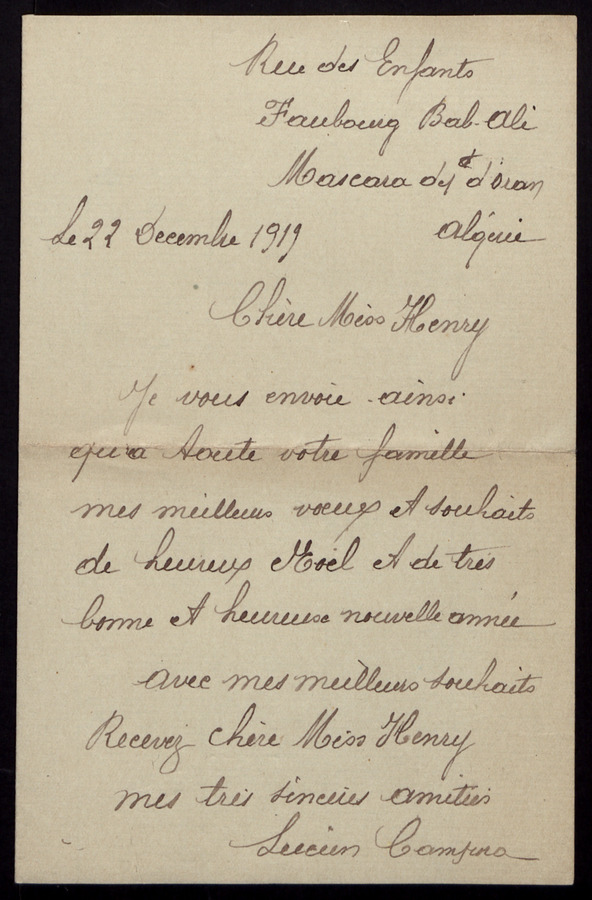 Rue des Enfants
Faubourg Bab-Ali
Mascara dep^t d'Oran
Le 22 Decembre 1919 Algérie
Chère Miss Henry
Je vous envoie ainsi
qu'a toute votre famille
mes meilleurs voeux et souhaits
de heureux Noël et de très
bonne et heureuse nouvelle année
avec mes meilleurs souhaits
Recevez chère Miss Henry
mes très sincères amitiés
Lucien